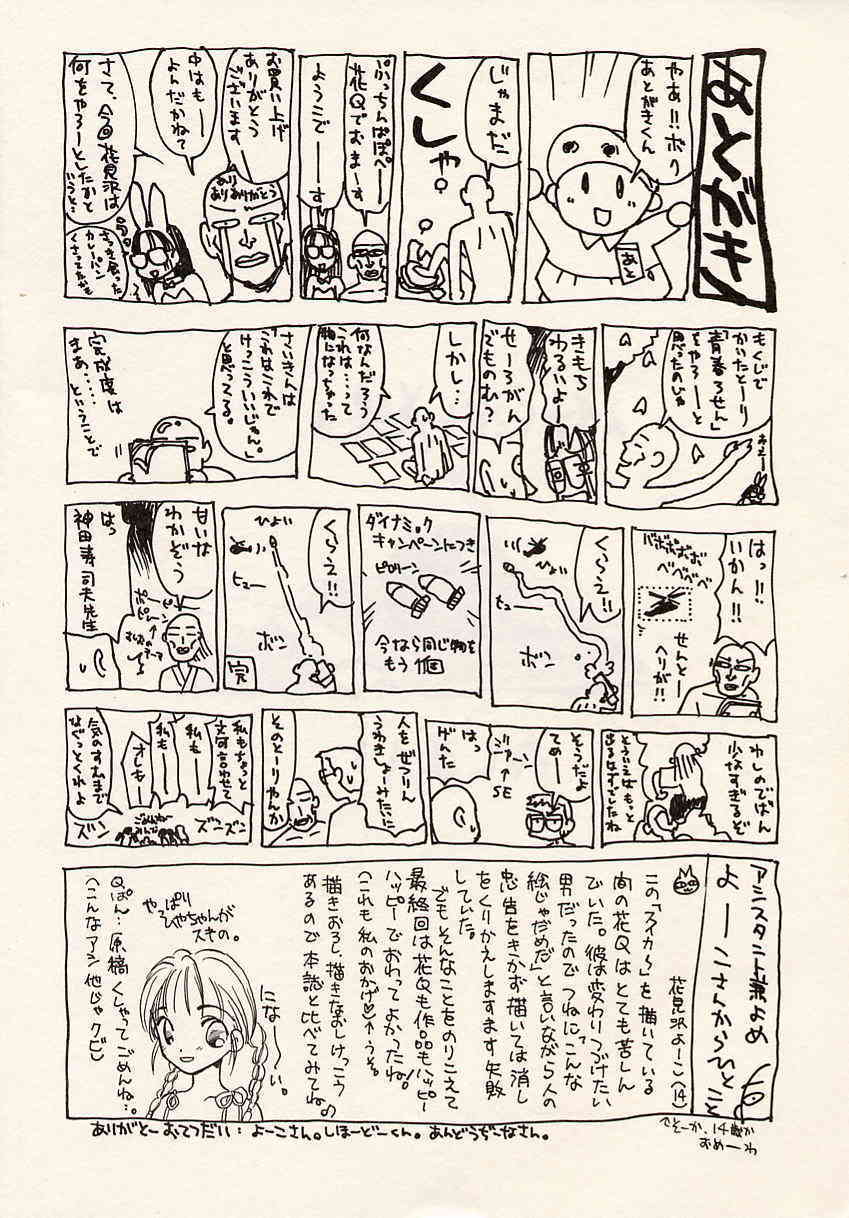 あとがき
やぁ!!ボク
あとがきくん
あと
じゃまだ
くしゃ
ぷかっちんぱぽぺー
花Qでおまーす
ようこそでーす
お買い上げ
ありがとう
ございます
中はもー
よんだかねて
あり
ありありがとう
さて、今回花見沢は
何をやろーとしたかと
いうと…
さっき食った
カレーパン
くさってたかも
もくじで
かいたとーり
「青春ろせん」
をやろーと
思ったのじゃ
きもち
わるいよー
せーろがん
でものむ?
しかし…
何なんだろう
これは…って
物になっちゃった
さいきんは
「これはこれで
けっこういいじゃん。」
と思ってくる。
完成度は
まあ‥‥
ということで
はっ!!
いかん!!
バボボボボボ
ベベベベベ
せんとー
ヘリが!!
くらえ!!
ヒュー
ボン
ダイナミック
キャンペーンにつき
ピロリーン
今なら同じ物を
もう1個
くらえ!!
ひょい
ヒュー
ボン
完
甘いな
わかぞう
はっ
神田寿司夫先生
わしのでばん
少なすぎるぞ
とういえばもっと
出るはずでしたね
そうだよ
てめー
ジャーン
↑
SE
はっ
げんた
人をぜつりん
うわきしょーみたいに
そのとーりやんか
私もちょっと
文句言わせて
私も
私も
オレも
気のすむまで
なぐっとくれよ
ごめんねー
みんな
ズン
ズンズン
アシスタント兼よめ
よーこさんからひとこと
花見沢よーこ(14)
この「スイカら」を描いている
間の花Qはとても苦しん
でいた。彼は変わりつづけたい
男だったのでつねに「こんな
絵じゃだめだ」と言いながら人の
忠告をきかず描いては消し
をくりかえしますます失敗
していた。
でもそんなことをのりこえて
最終回は花Qも作品もハッピー
ハッピーでおわってよかったね!
(これも私のおかげ♡)↑うそ。
描きおろし、描きなおしけっこう
あるので本誌と比べてみてね。
になーい。
やっぱり
ひやちゃんが
スキの。
Qぱん…原稿くしゃってごめんね…。
(こんなアシ他じゃクビ)
ありがとーおてつだい:よーこさん。しほーどーくん。あんどうぢーなさん。
↑
でそーか、14歳か
おめーわ